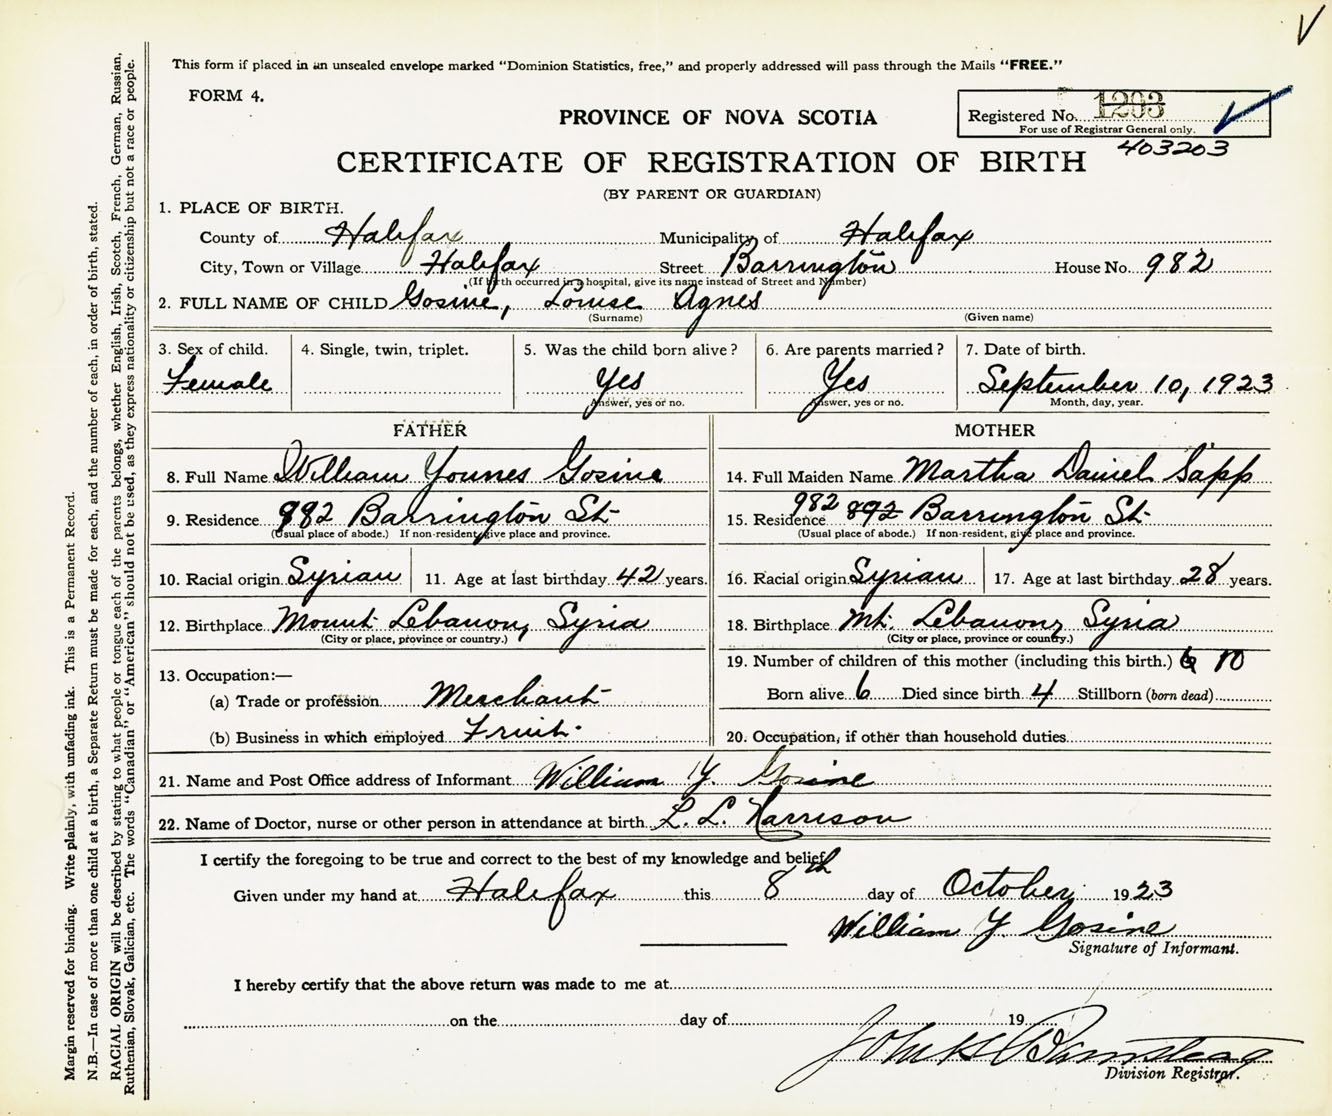 This form if placed in an unsealed envelope marked "Dominion Statistics, free," and properly addressed will pass through the Mails "FREE."
FORM 4.
PROVINCE OF NOVA SCOTIA
Registered No. 1203
For use of Registrar General only.
403203
CERTIFICATE OF REGISTRATION OF BIRTH
(BY PARENT OR GUARDIAN)
1. PLACE OF BIRTH.
County of Halifax Municipality of Halifax
City, Town or Village Halifax Street Barrington House No. 982
(If birth occurred in a hospital, give its name instead of Street and Number)
2. FULL NAME OF CHILD Gosine, Louise Agnes
(Surname) (Given name)
3. Sex of child. 4. Single, twin, triplet. 5. Was the child born alive? 6. Are parents married? 7. Date of birth.
Female Yes Yes September 10, 1923
Answer, yes or no. Answer, yes or no. Month, day, year.
FATHER MOTHER
8. Full Name William Younes Gosine 14. Full Maiden Name Martha Daniel Sapp
9. Residence 982 Barrington St. 15. Residence 982 892 Barrington St.
(Usual place of abode.) If non-resident, give place and province. (Usual place of abode.) If non-resident, give place and province.
10. Racial origin Syrian 11. Age at last birthday 42 years. 16. Racial origin Syrian 17. Age at last birthday 28 years.
12. Birthplace Mount Lebanon, Syria 18. Birthplace Mt. Lebanon, Syria
(City or place, province or country.) (City or place, province or country.)
13. Occupation:— 19. Number of children of this mother (including this birth.) 10
(a) Trade or profession Merchant Born alive 6 Died since birth 4 Stillborn (born dead)
(b) Business in which employed Fruit. 20. Occupation, if other than household duties
21. Name and Post Office address of Informant William Y. Gosine
22. Name of Doctor, nurse or other person in attendance at birth L. L. Harrison
I certify the foregoing to be true and correct to the best of my knowledge and belief.
Given under my hand at Halifax this 8th day of October 1923
William Y Gosine
Signature of Informant.
I hereby certify that the above return was made to me at
on the day of 19
John
Division Registrar.
Margin reserved for binding. Write plainly, with unfading ink. This is a Permanent Record.
N.B.—In case of more than one child at a birth, a Separate Return must be made for each, and the number of each, in order of birth, stated.
RACIAL ORIGIN will be described by stating to what people or tongue each of the parents belongs, whether English, Irish, Scotch, French, German, Russian,
Ruthenian, Slovak, Galician, etc. The words "Canadian" or "American" should not be used, as they express nationality or citizenship but not a race or people.